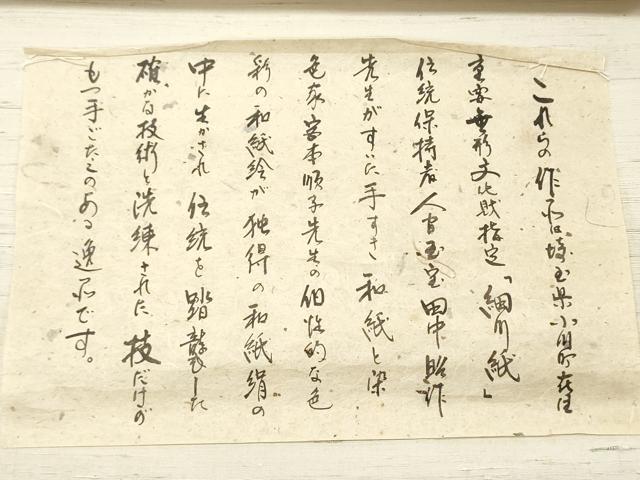 これらの作品は埼玉県小川町在住
重要無形文化財指定「細川紙」
伝統保持者人間国宝田中昭作
先生がすいた手すき和紙と染
色家宮本順子先生の個性的な色
彩の和紙絵が独得の和紙絹の
中に生かされ伝統を踏襲した
確かな技術と洗練された技だけが
もつ手ごたえのある逸品です。